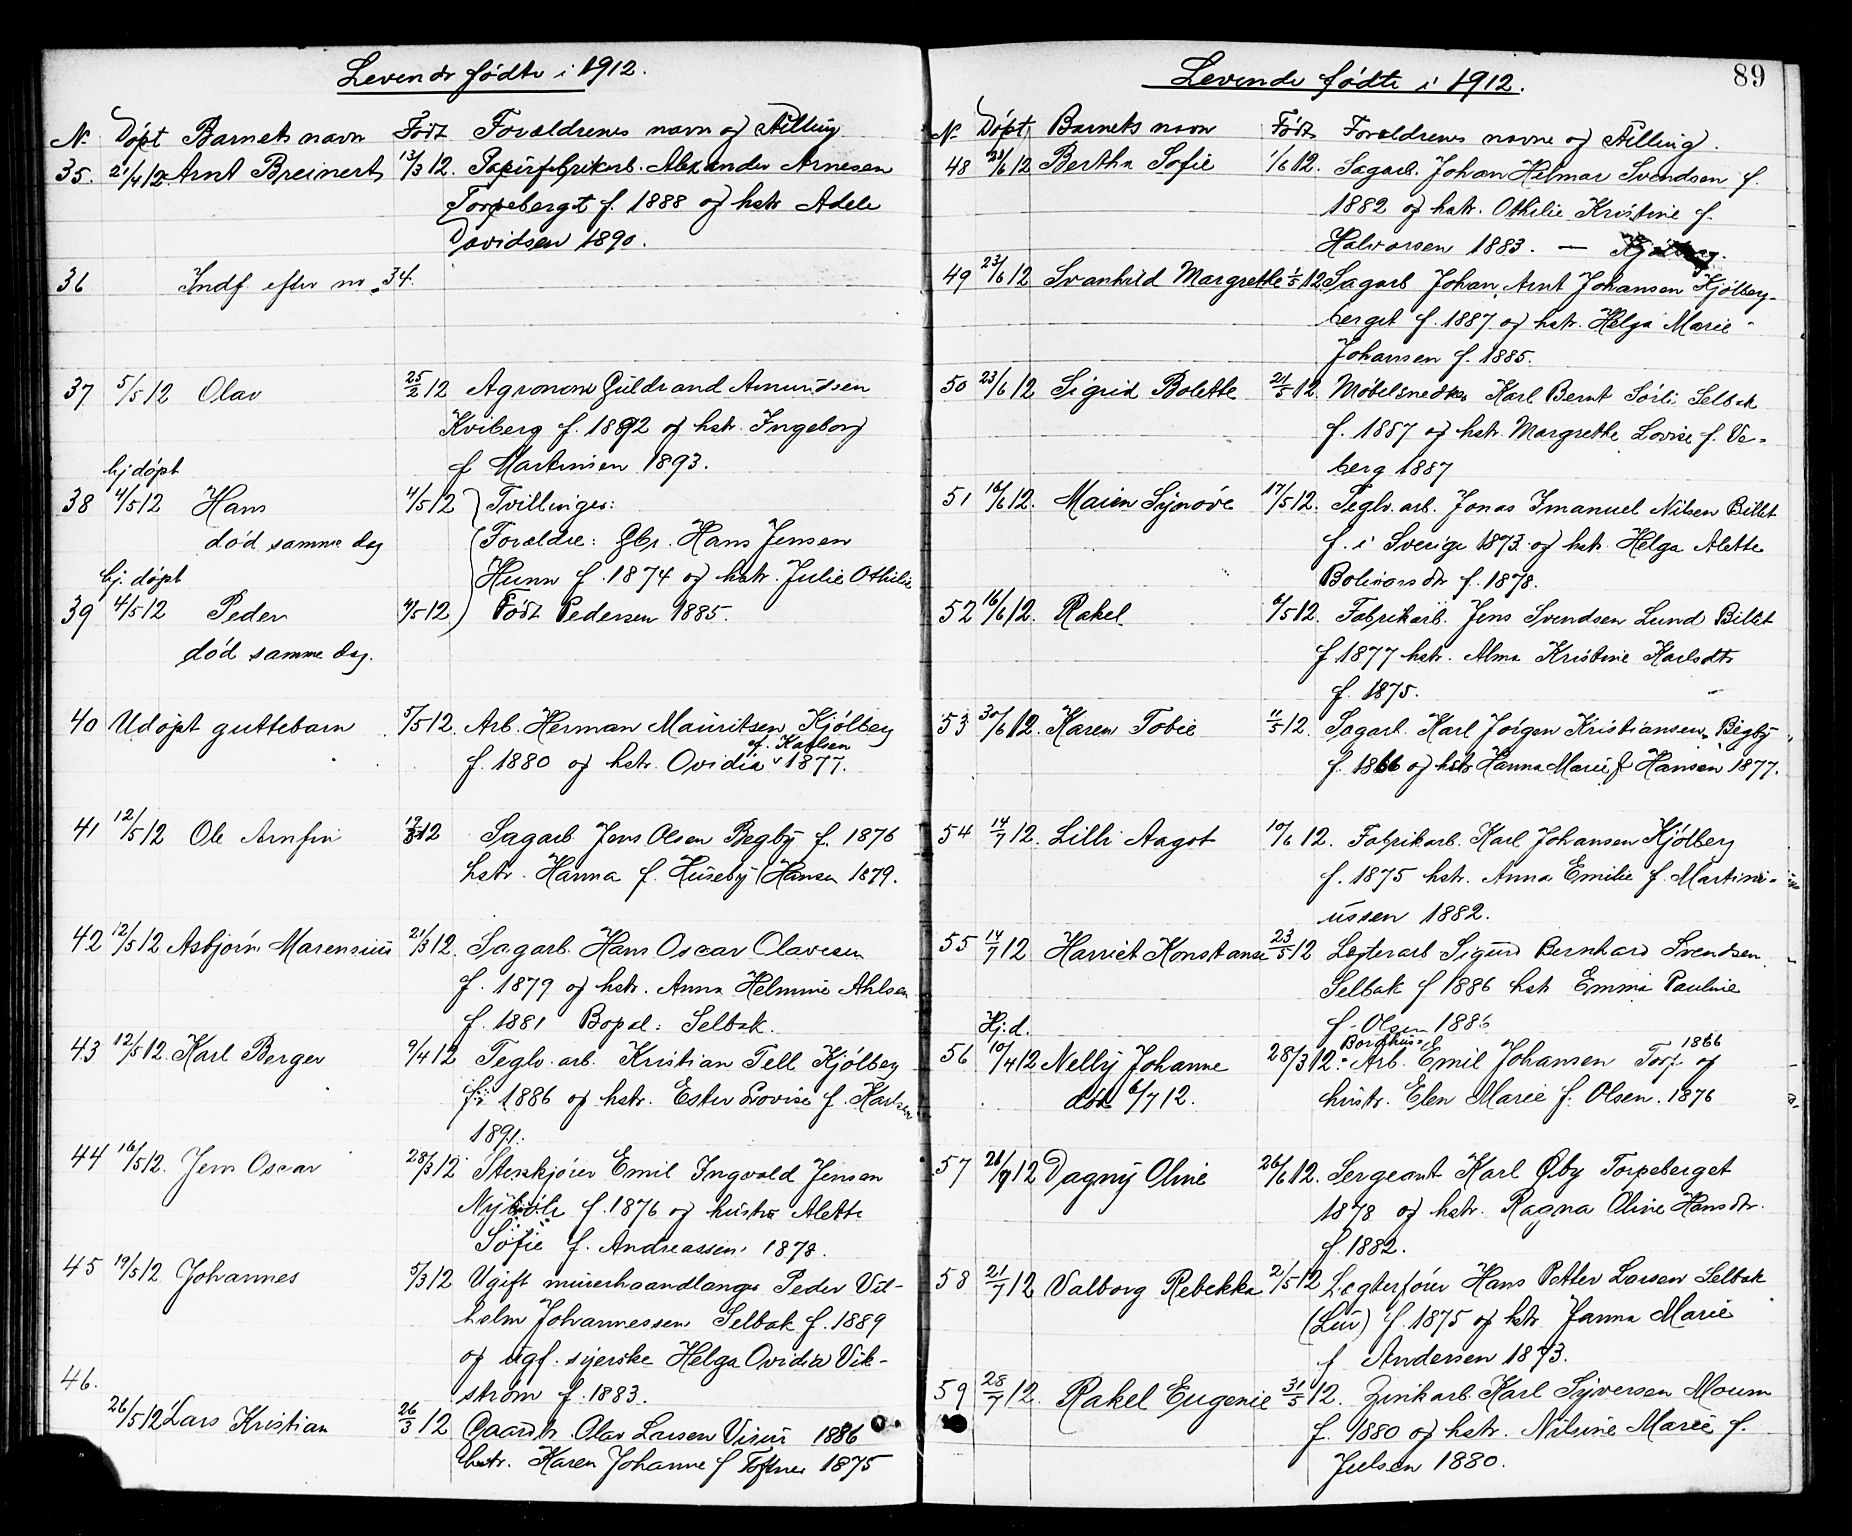 Levende födte i 1912.
Nr Döpt Barnets navn Födt Forældrenes navn og stilling
35. 21/4 12. Arnt Breinert 13/3 12. Papirfabrikarb. Alexander Arnesen
Torpeberget f. 1888 og hstr Adele
Davidsen 1890.
36 Indf efter no 34.
37 5/5 12 Olav 25/2 12 Agronom Guldrand Amundsen
Kviberg f. 1892 og hstr. Ingeborg
f Martinsen 1893.
hj döpt
38 4/5 12 Hans 4/5 12 Tvillinger:
död samme dag Forældre: Gbr. Hans Jensen
hj. döpt Hunn f. 1874 og hstr. Julie Othilie
39 4/5 12 Peder 4/5 12 Födt Pedersen 1885.
död samme dag.
40 Udöpt guttebarn 5/5 12. Arb. Herman Mauritsen Kjölberg
f. Karlsen
f. 1880 og hstr. Ovidia 1877.
41 12/5 12 Ole Arnfin 12 Sagarb Jens Olsen Begby f. 1876
hstr. Hanna f. Huseby (Hansen 1879.
42 12/5 12 Asbjörn Marensius 21/3 12. Sagarb. Hans Oscar Olavesen
f. 1879 og hstr. Anna Helmine Ahlsen
f. 1881 Bopæl: Selbak.
43 12/5 12. Karl Berger 9/4 12 Teglv. arb. Kristian Tell Kjölberg
1886 og hstr. Ester Lovise f. Karlsen
1891.
44 16/5 12. Jens Oscar 28/3 12 Stenkjörer Emil Ingvald Jensen
f. 1876 og hustru Alette
Sofie f. Andreassen 1878.
45 19/5 12 Johannes 5/3 12 Ugift murerhaandlanger Peder Vil-
helm Johannessen Selbak f. 1889
og ugf. syerske Helga Ovidia Vik-
ström f. 1883.
46.
26/5 12 Lars Kristian 26/3 12 Gaardbr. Olav Larsen Visur 1886
hstr. Karen Johanne f Toftner 1875
89
Levende födte i 1912.
Nr Döpt Barnets navn Födt Forældrenes navne og stilling.
48 21/6 12 Bertha Sofie 1/6 12. Sagarb. Johan Hilmar Svendsen f.
1882 og hstr. Othilie Kristine f.
Halvorsen 1883. — Kjölberg.
49 23/6 12 Svanhild Margrethe 1/5 12 Sagarb Johan Arnt Johansen Kjölberg-
berget f. 1887 og hstr. Helga Marie
Johansen f. 1885.
50 23/6 12 Sigrid Bolette 21/5 12. Möbelsnedker Karl Bernt Sörli Selbak
f. 1887 og hstr. Margrethe Lovise f. Ve-
berg 1887
51 16/6 12. Maien Synöve 17/5 12. Teglv. arb. Jonas Imanuel Nilsen Billet
f. i Sverige 1873 og hstr. Helga Alette
f. 1878.
52 16/6 12. Rakel 6/5 12. Fabrikarb. Jens Svendsen Lund Billet
f 1877 hstr. Alma Kristine Karlsdtr
f. 1875.
53 30/6 12. Karen Tobie 11/5 12. Sagarb. Karl Jörgen Kristiansen Begby
f. 1866 og hstr Hanna Marie f Hansen 1877.
54 14/7 12. Lilli Aagot 10/6 12. Fabrikarb. Karl Johansen Kjölberg
f. 1875 hstr. Anna Emilie f. Martini-
ussen 1882.
55 14/7 12 Harriet Konstanse 23/5 12 Lægterarb Sigurd Bernhard Svendsen
Selbak f 1886 hstr Emma Pauline
f. Olsen 1886
Hj. d. Borghus
56 10/4 12 Nelly Johanne 28/3 12. Arb. Emil Johansen Torp 1866 og
död 6/7 12. hustr. Elen Marie f. Olsen. 1876
57 21/7 12 Dagny Oline 26/6 12. Sergeant Karl Øby Torpeberget
1878 og hstr. Ragna Oline Hansdtr.
f. 1882.
58 21/7 12 Valborg Rebekka 2/5 12 Lægterförer Hans Petter Larsen Selbak
(Lur) f. 1875 og hstr Janna Marie
f Andersen 1873.
59 28/7 12. Rakel Eugenie 31/5 12. Zinkarb. Karl Syversen Moum
f. 1880 og hstr. Nilsine Marie f.
Julsen 1880.